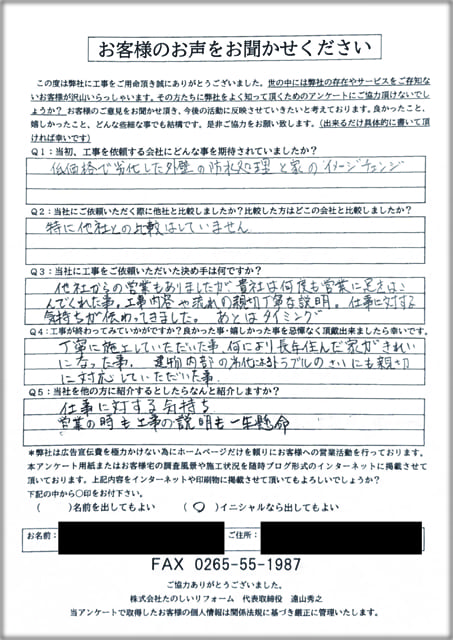 お客様のお声をお聞かせください
この度は弊社に工事をご用命頂き誠にありがとうございました。世の中には弊社の存在やサービスをご存知な
いお客様が沢山いらっしゃいます。その方たちに弊社をよく知って頂くためのアンケートにご協力頂けないで
しょうか？ お客様のご意見をお聞かせ頂き、今後の活動に反映させていきたいと考えております。良かったこと、
嬉しかったこと、どんな些細な事でも結構です、是非ご協力をお願い致します。（出来るだけ具体的に書いて頂
ければ幸いです）
Q１：当初、工事を依頼する会社にどんな事を期待されていましたか？
低価格で劣化した外壁の防水処理と家のイメージチェンジ
Q２：当社にご依頼いただく際に他社と比較しましたか？比較した方はどこの会社と比較しましたか？
特に他社との比較はしていません
Q３：当社に工事をご依頼いただいた決め手は何ですか？
他社からの営業もありましたが貴社は何度も営業に足をはこ
んでくれた事。工事内容や流れの親切丁寧な説明。仕事に対する
気持ちが伝わってきました。 あとはタイミング
Q４：工事が終わってみていかがですか？良かった事・嬉しかった事を忌憚なく頂戴出来ましたら幸いです。
丁寧に施工していただいた事、何により長年住んだ家がきれい
になった事、 建物内部の劣化によるトラブルのさいにも親切
に対応していただいた事
Q５：当社を他の方に紹介するとしたらなんと紹介しますか？
仕事に対する気持ち
営業の時も工事の説明も一生懸命
＊弊社は広告宣伝費を極力かけない為にホームページだけを頼りにお客様への営業活動を行っております。
本アンケート用紙またはお客様宅の調査風景や施工状況を随時ブログ形式のインターネットに掲載させて
頂いております。上記内容をインターネットや印刷物に掲載させて頂いてもよろしいでしょうか？
下記の中から〇印をお付下さい。
（ ）名前を出してもよい （〇）イニシャルなら出してもよい
お名前： ご住所：
FAX 0265-55-1987
ご協力ありがとうございました。
株式会社たのしいリフォーム 代表取締役 遠山秀之
当アンケートで取得したお客様の個人情報は関係法規に基づき厳正に管理いたします。